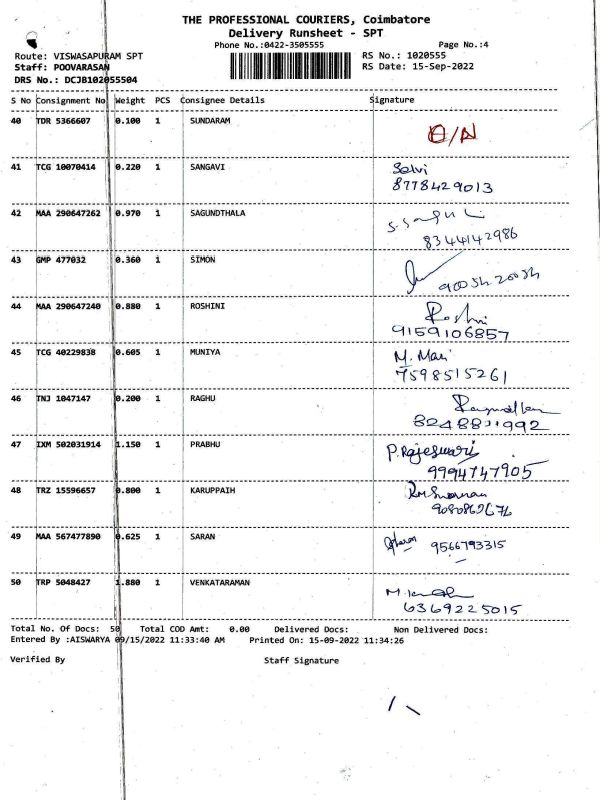 THE PROFESSIONAL COURIERS, Coimbatore
Delivery Runsheet - SPT
Phone No.:0422-3505555 Page No.:4
Route: VISWASAPURAM SPT RS No.: 1020555
Staff: POOVARASAN RS Date: 15-Sep-2022
DRS No.: DCJB102055504
S No Consignment No Weight PCS Consignee Details Signature
40 TDR 5366607 0.100 1 SUNDARAM
41 TCG 10070414 0.220 1 SANGAVI Selvi
8778429013
42 MAA 290647262 0.970 1 SAGUNDTHALA
8344142986
43 GMP 477032 0.360 1 SIMON
44 MAA 290647240 0.880 1 ROSHINI Roshni
9159106857
45 TCG 40229838 0.605 1 MUNIYA M. Mari
7598515261
46 TNJ 1047147 0.200 1 RAGHU
47 IXM 502031914 1.150 1 PRABHU P. Rajeswari
9994747905
48 TRZ 15596657 0.800 1 KARUPPAIH
49 MAA 567477890 0.625 1 SARAN
9566793315
50 TRP 5048427 1.880 1 VENKATARAMAN
6369225015
Total No. Of Docs: 50 Total COD Amt: 0.00 Delivered Docs: Non Delivered Docs:
Entered By :AISWARYA 09/15/2022 11:33:40 AM Printed On: 15-09-2022 11:34:26
Verified By Staff Signature